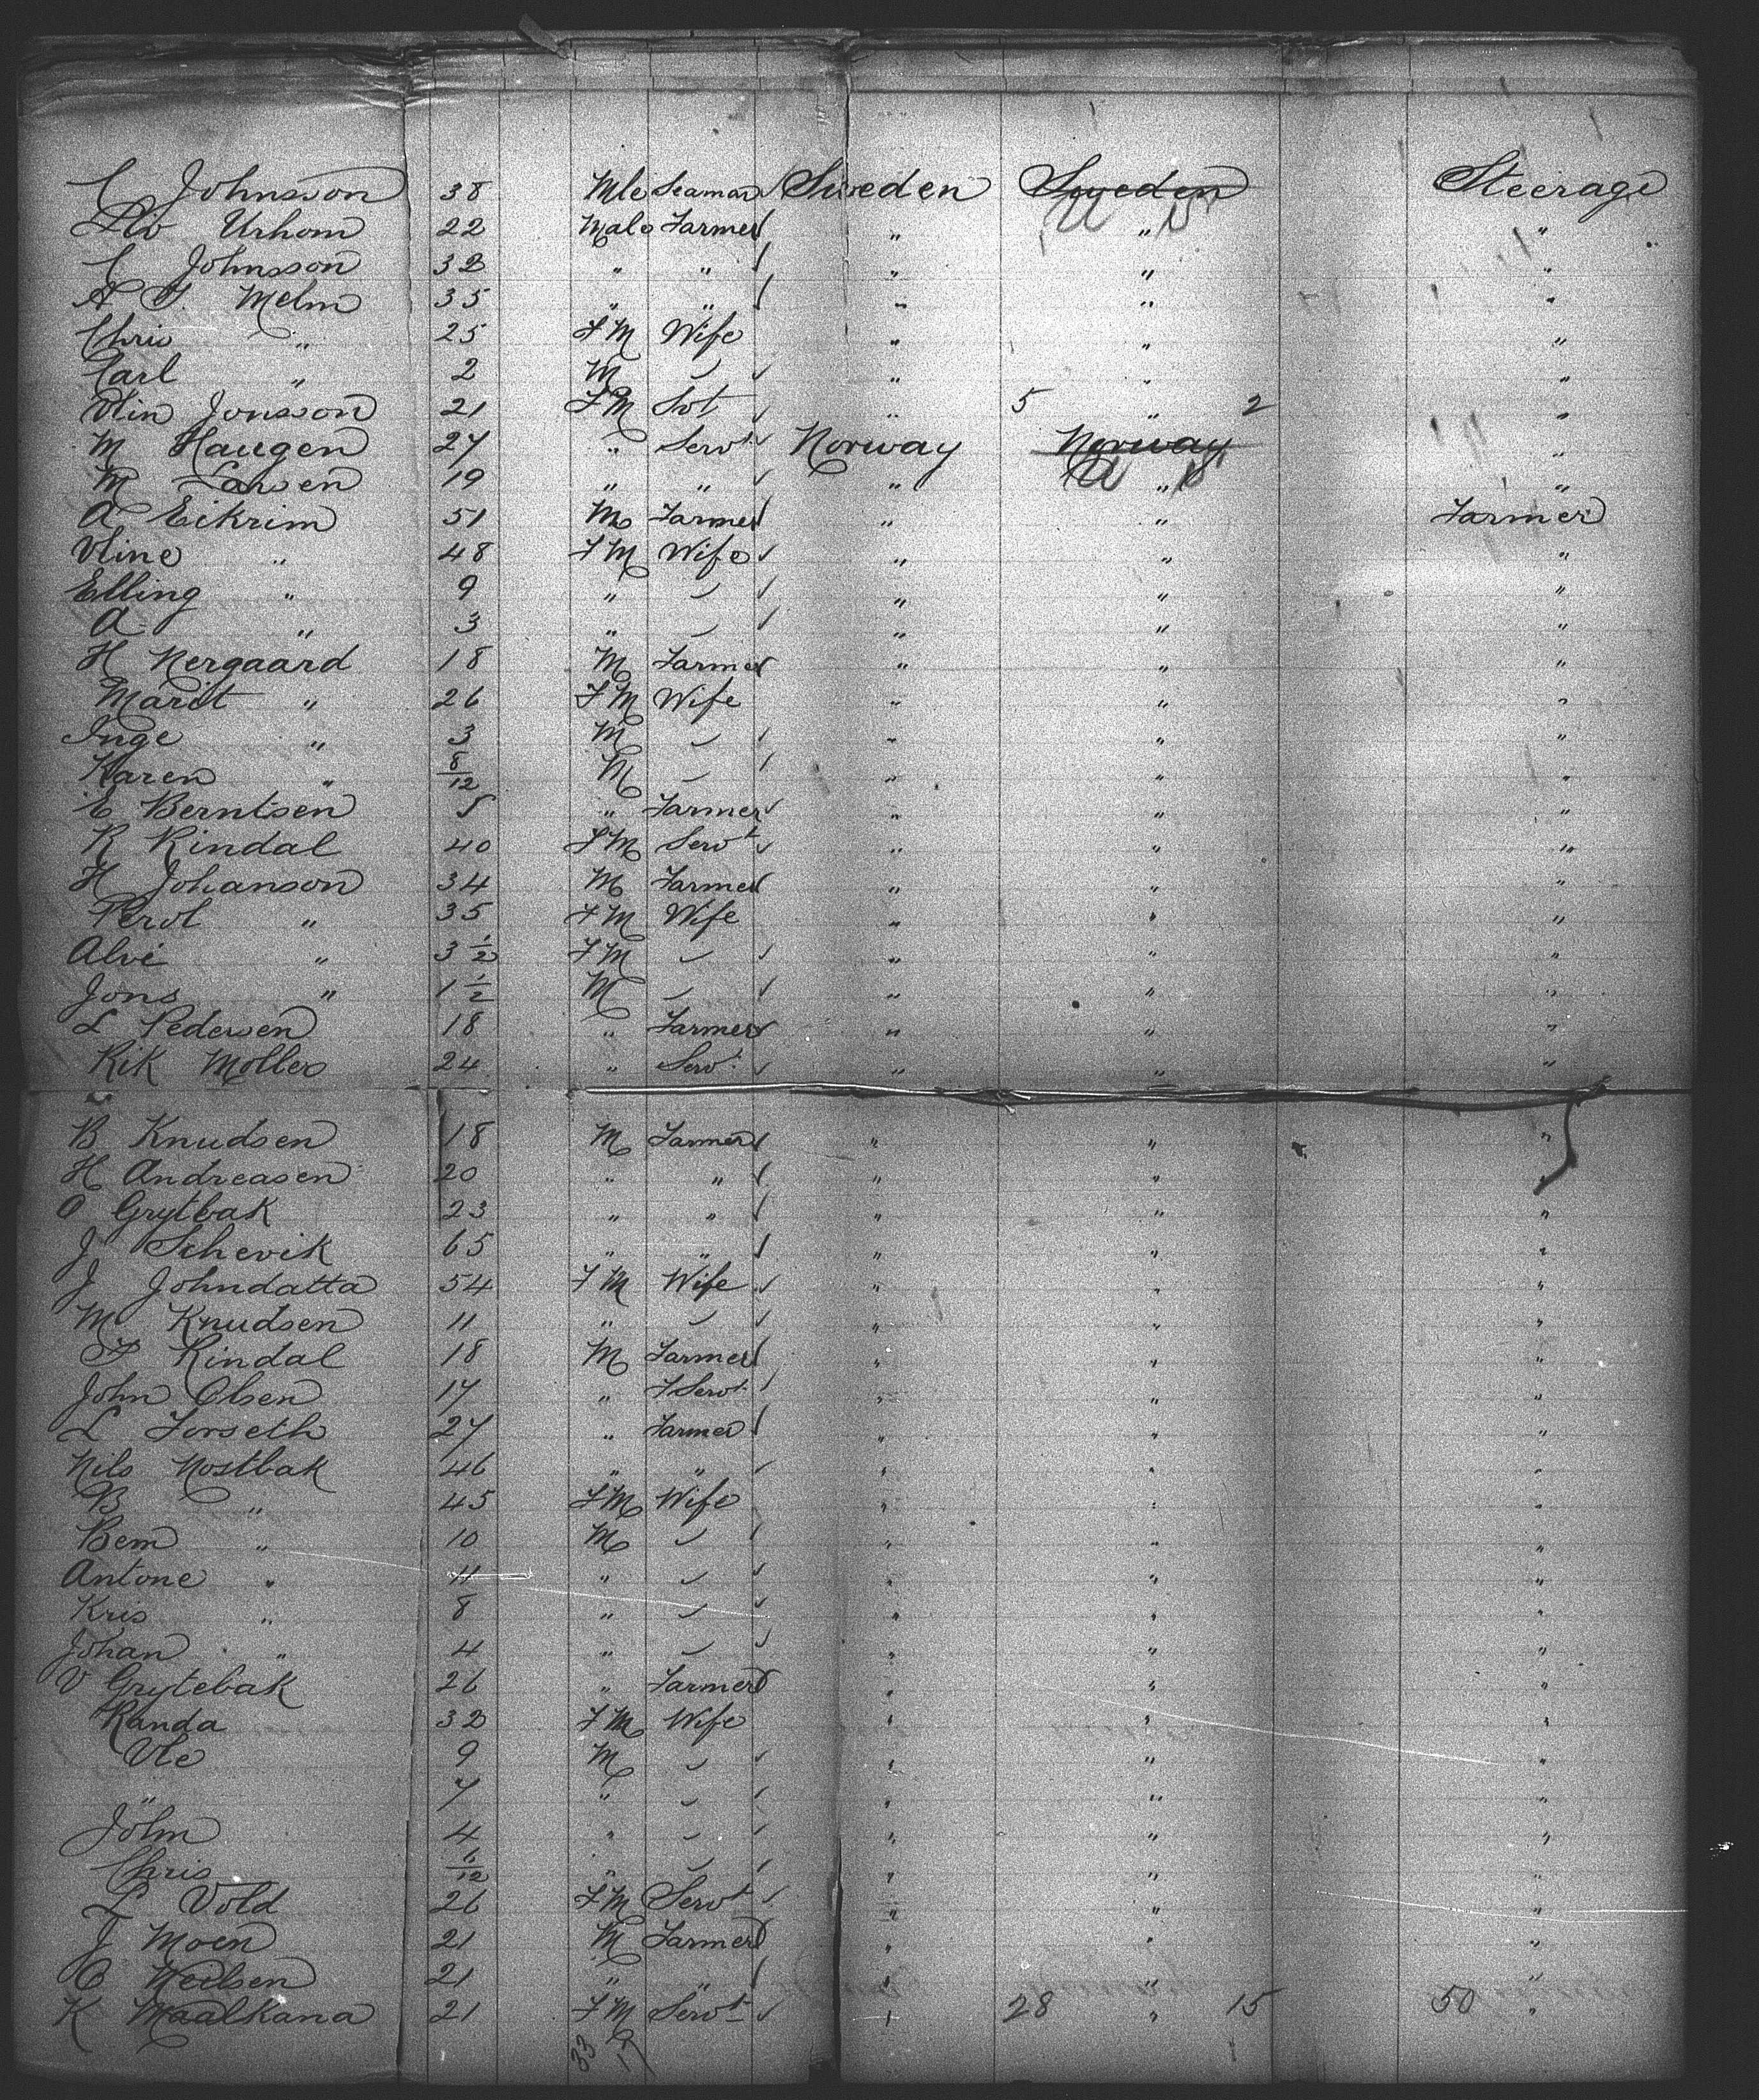 C Johnsson 38 Mle Seaman Sweden Sweden Steerage
Urhom 22 Male Farmer " " U S "
C Johnsson 32 " " " " "
A P. Melm 35 " " " " "
Chris " 25 FM Wife " " "
Carl " 2 M " " "
Olin Jonsson 21 FM Svt " 5 " 2 "
M Haugen 27 " Servt Norway Norway "
M Larsen 19 " " " U " S "
A Eikrim 51 M Farmer " " Farmer
Oline " 48 FM Wife " " "
Elling " 9 " " " "
A " 3 " " " "
H Nergaard 18 M Farmer " " "
Marit " 26 FM Wife " " "
Inge " 3 M " " "
Karen " 8/12 M " " "
E Berntsen " Farmer " " "
R Rindal 40 FM Servt " " "
H Johanson 34 M Farmer " " "
Perol " 35 FM Wife " " "
Alvi " 3 1/2 FM " " "
Jons " 1 1/2 M " " "
L Pedersen 18 " Farmer " " "
Kik Moller 24 " Servt " " "
B Knudsen 18 M Farmer " " "
H Andreasen 20 " " " " "
O Grytbak 23 " " " " "
J Schevik 65 " " " " "
J Johndatta 54 FM Wife " " "
M Knudsen 11 " " " "
P Rindal 18 M Farmer " " "
John Olsen 17 " F Servt " " "
L Forseth 27 " Farmer " " "
Nils Mostbak 46 " " " " "
B " 45 FM Wife " " "
Bem " 10 M " " "
Antone " 11 " " " "
Kris " 8 " " " "
Johan " 4 " " " "
O Grytebak 26 " Farmer " " "
Randa 32 FM Wife " " "
Ole 9 M " " "
" 7 " " " "
John 4 " " " "
Chris /12 " " " "
L Vold 26 FM Servt " " "
J Moen 21 M Farmer " " "
C Neilsen 21 " " " " "
K Maalkana 21 FM Servt " 28 " 15 50 "
33 17